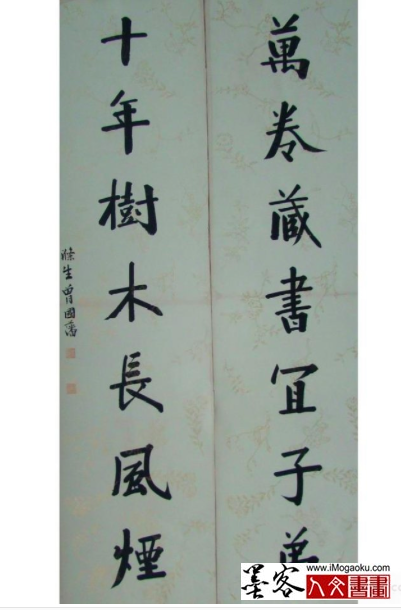 萬卷藏書宜子弟
十年樹木長風煙
滌生曾國藩
墨客
www.iMogaoku.com
人文書畫